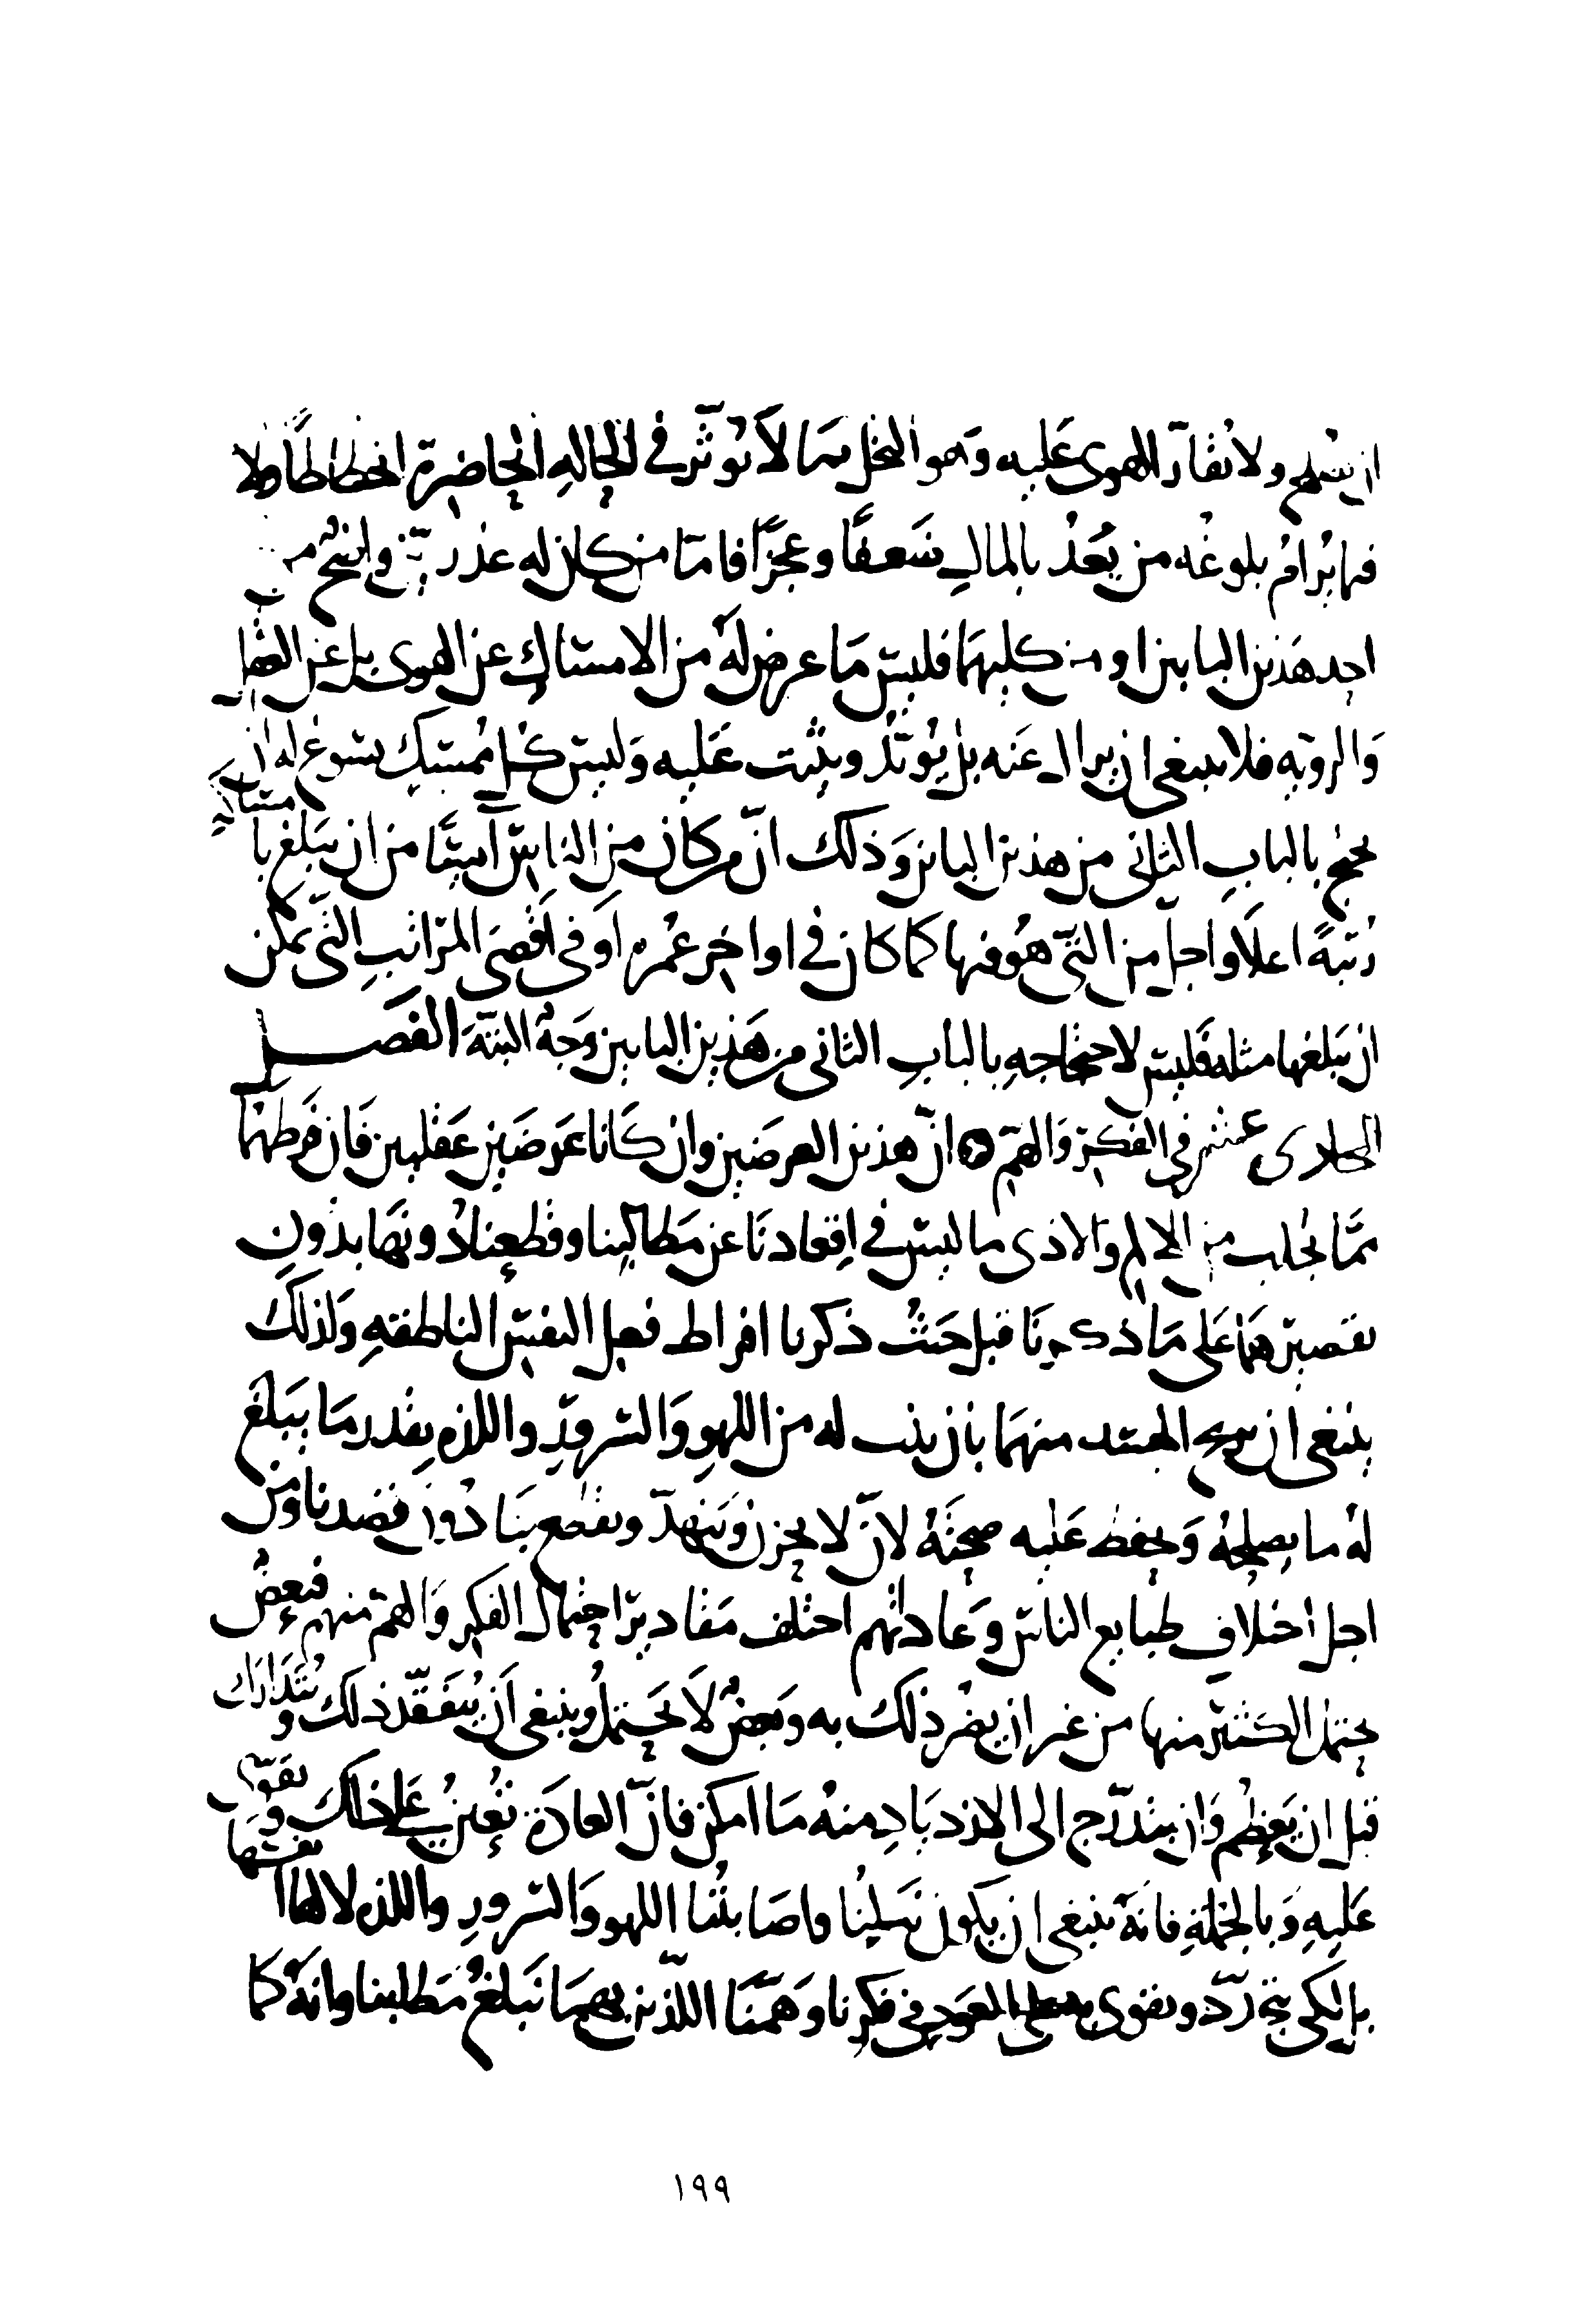 ان يصلح ولا يقار الهوى عليه وهو البخل بما لا يؤثر في الحالة الحاضرة انحطاطا ولا
فيما يرام بلوغه من بعد بالمال ضعفا وعجزا فاما من كان له عذر بين واضح من
احد هذين البابين او من كليهما فليس ما عرض له من الامساك عن الهوى بل عن العقل
والروية فلا ينبغي ان يزال عنه بل يؤيد ويثبت عليه وليس كل ممسك يسوغ له ان
يحتج بالباب الثاني من هذين البابين وذلك ان من كان من الناس آيسا من ان يبلغ بامساكه
رتبة اعلا واجل من التي هو فيها كما كان في اواخر عمره او في اقصى المراتب التي يمكن
ان يبلغها مثله فليس لاحتجاجه بالباب الثاني من هذين البابين وجه البتة الفصل
الحادى عشر في الفكرة والهم ان هذين العرضين وان كانا عرضين عقليين فان فرطهما
مما يجلب من الالم والاذى ما ليس في اقعادنا عن مطالبنا وقطعنا دونها بدون
تقصيرهما على ما ذكرنا قبل حيث ذكرنا افراط فعل النفس الناطقة ولذلك
ينبغي ان يريح الجسد منهما بان ينب له من اللهو والسرور واللذه بقدر ما يبلغ
له ما يصلحه ويحفظ عليه صحته لان لا يحزن وينهد ويقطع بنا دون قصدنا ومن
اجل اختلاف طبايع الناس وعاداتهم اختلف مقادير احتمال الفكر والهم منهم فبعض
يحتمل الكثير منها من غير ان يضر ذلك به وبعض لا يحتمل وينبغي ان يتفقد ذلك ويتدارك
قبل ان يعظم وان يتدرج الى الازدياد منه ما امكن فان العادة تعين على ذلك وتقوى
عليه وبالجملة فانه ينبغي ان يكون نسلينا واصابتنا اللهو والسرور واللذه لا لها نفسها
بل لكى يتجدد ونقوى به على العود في فكرنا وهمنا اللذين بهما نبلغ مطالبنا وانه كما
١٩٩